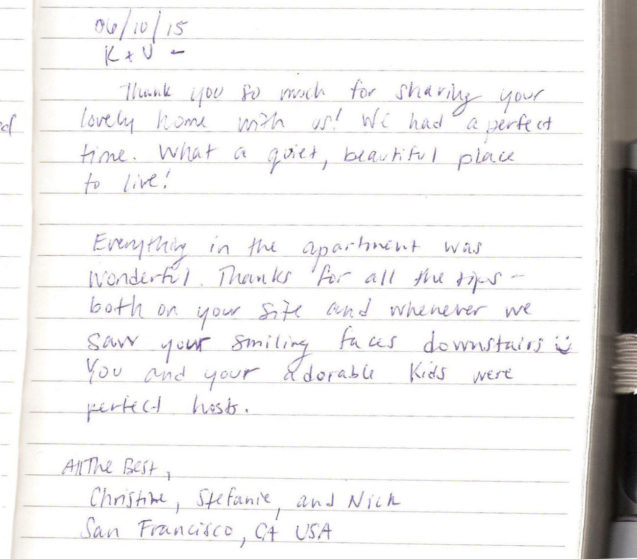 06/10/15
K + V –
Thank you so much for sharing your
lovely home with us! We had a perfect
time. What a quiet, beautiful place
to live!
Everything in the apartment was
wonderful. Thanks for all the tips –
both on your site and whenever we
saw your smiling faces downstairs ☺
You and your adorable kids were
perfect hosts.
All The Best,
Christine, Stefanie, and Nick
San Francisco, CA USA